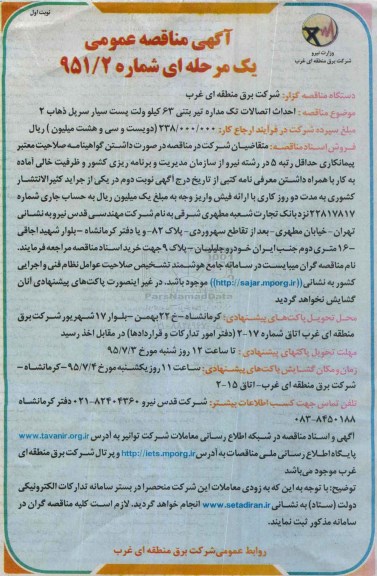 نوبت اول
وزارت نیرو
شرکت برق منطقه ای غرب
آگهی مناقصه عمومی
یک مرحله ای شماره ۹۵۱/۲
دستگاه مناقصه گزار: شرکت برق منطقه ای غرب
موضوع مناقصه : احداث اتصالات تک مداره تیر بتنی ۶۳ کیلو ولت پست سیار سرپل ذهاب ۲
مبلغ سپرده شرکت در فرآیند ارجاع کار: ۲۳۸/۰۰۰/۰۰۰ (دویست و سی و هشت میلیون ) ریال
فروش اسناد مناقصه: متقاضیان شرکت در مناقصه در صورت داشتن گواهینامه صلاحیت معتبر
پیمانکاری حداقل رتبه ۵ در رشته نیرو از سازمان مدیریت و برنامه ریزی کشور و ظرفیت خالی آماده
به کار با همراه داشتن معرفی نامه کتبی از تاریخ درج آگهی نوبت دوم در یکی از جراید کثیرالانتشار
کشوری به مدت دو روز کاری با ارائه فیش واریز وجه به مبلغ یک میلیون ریال به حساب جاری شماره
۲۲۸۱۷۸۱۷ نزد بانک تجارت شعبه مطهری شرقی به نام شرکت مهندسی قدس نیرو به نشانی
تهران -خیابان مطهری -بعد از تقاطع سهروردی- پلاک ۸۲- و یا دفتر کرمانشاه - بلوار شهید اجاقی
-۱۶ متری دوم جنب ایران خودرو جلیلیان - پلاک ۹ جهت خرید اسناد مناقصه مراجعه فرمایند.
نام مناقصه گران میبایست در سامانه جامع هوشمند تشخیص صلاحیت عوامل نظام فنی و اجرایی
کشور به نشانی ((http://sajar.mporg.ir)) موجود باشد. در غیر اینصورت پاکت‌های پیشنهادی آنان
گشایش نخواهد گردید
ParsNamadData
محل تحویل پاکت‌های پیشنهادی: کرمانشاه -خ ۲۲ بهمن -بلوار ۱۷ شهریور شرکت برق
منطقه ای غرب اتاق شماره ۱۷-۲ (دفتر امور تدارکات و قراردادها) در مقابل اخذ رسید
مهلت تحویل پاکتهای پیشنهادی : تا ساعت ۱۲ روز شنبه مورخ ۹۵/۷/۳
زمان و مکان گشایش پاکت‌های پیشنهادی: ساعت ۱۱ روز یکشنبه مورخ ۹۵/۷/۴ -کرمانشاه -
شرکت برق منطقه ای غرب -اتاق ۱۵-۲
تلفن تماس جهت کسب اطلاعات بیشتر: شرکت قدس نیرو ۸۲۴۰۴۳۶۰-۰۲۱ دفتر کرمانشاه
۰۸۳-۸۴۵۰۱۸۸
آگهی و اسناد مناقصه در شبکه اطلاع رسانی معاملات شرکت توانیر به آدرس www.tavanir.org.ir
پایگاه اطلاع رسانی ملی مناقصات به آدرس http://iets.mporg.ir و پرتال شرکت برق منطقه ای
غرب موجود می‌باشد
توضیح: با توجه به این که به زودی معاملات این شرکت منحصرا در بستر سامانه تدارکات الکترونیکی
دولت (ستاد) به نشانی www.setadiran.ir انجام خواهد گردید. لازم است کلیه مناقصه گران در
سامانه مذکور ثبت نمایند.
روابط عمومی شرکت برق منطقه ای غرب